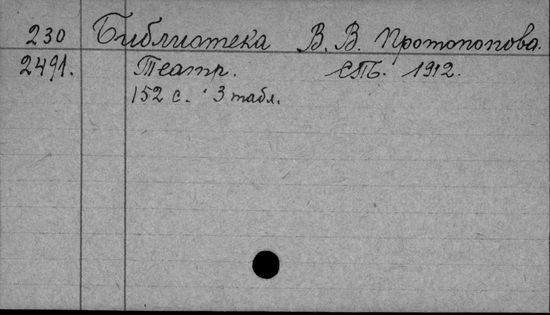 230 Библиотека В. В. Протопопова.
2491. Театр. СПБ. 1912.
152 с. 3 табл.